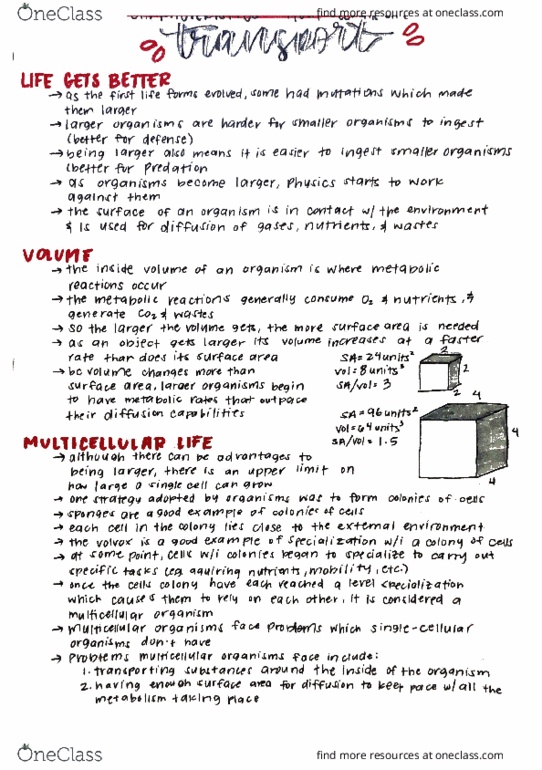 OneClass
find more resources at oneclass.com
transport
LIFE GETS BETTER
→ as the first life forms evolved, some had mutations which made
them larger
→ larger organisms are harder for smaller organisms to ingest
(better for defense)
→ being larger also means it is easier to ingest smaller organisms
(better for predation
→ as organisms become larger, physics starts to work
against them
→ the surface of an organism is in contact w/ the environment
& is used for diffusion of gases, nutrients, & wastes
VOLUME
→ the inside volume of an organism is where metabolic
reactions occur
→ the metabolic reactions generally consume O₂ & nutrients, &
generate CO₂ & wastes
→ so the larger the volume gets, the more surface area is needed
→ as an object gets larger its volume increases at a faster
rate than does its surface area
→ bc volume changes more than
surface area, larger organisms begin
to have metabolic rates that outpace
their diffusion capabilities
SA = 24 units²
vol = 8 units³
SA/vol = 3
2
2
2
SA = 96 units²
vol = 64 units³
SA/vol = 1.5
4
4
4
MULTICELLULAR LIFE
→ although there can be advantages to
being larger, there is an upper limit on
how large a single cell can grow
→ one strategy adopted by organisms was to form colonies of cells
→ sponges are a good example of colonies of cells
→ each cell in the colony lies close to the external environment
→ the volvox is a good example of specialization w/i a colony of cells
→ at some point, cells w/i colonies began to specialize to carry out
specific tasks (eg aquiring nutrients, mobility, etc.)
→ once the cells colony have each reached a level specialization
which causes them to rely on each other, it is considered a
multicellular organism
→ multicellular organisms face problems which single-cellular
organisms don't have
→ problems multicellular organisms face include:
1. transporting substances around the inside of the organism
2. having enough surface area for diffusion to keep pace w/ all the
metabolism taking place
OneClass
find more resources at oneclass.com